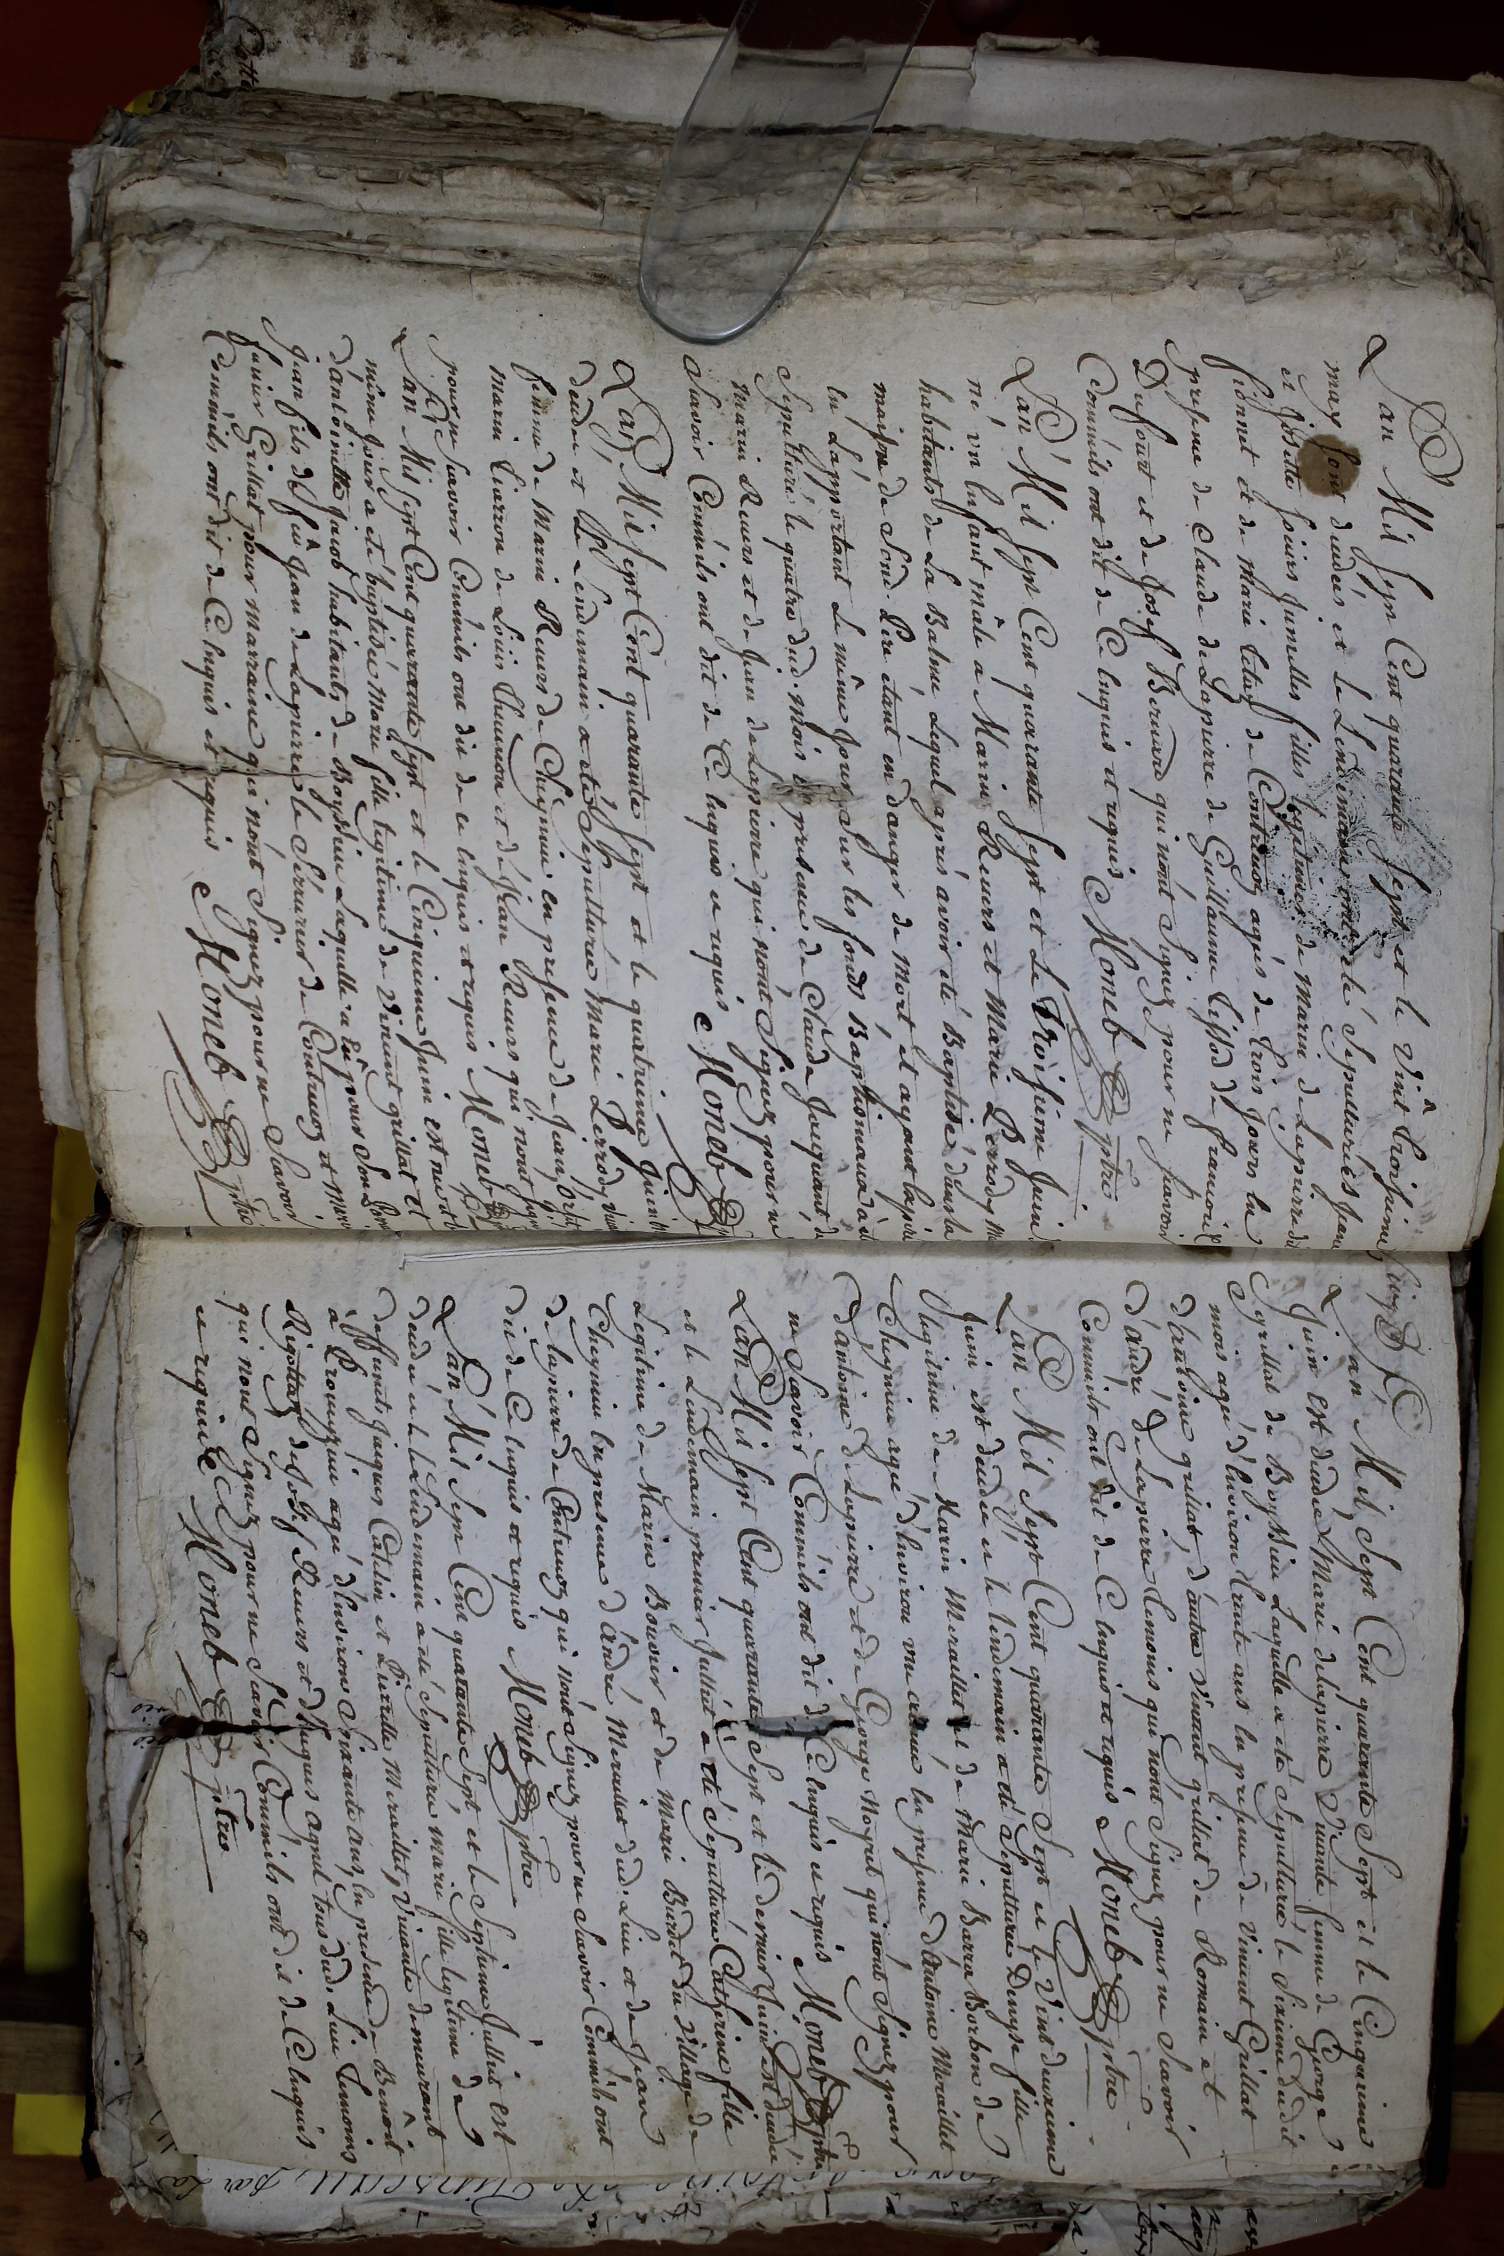 L'an Mil Sept Cent quarante Sept et le Vint troisieme
may sont deudées et le Lendemain ont eté Sepulturées Jane
et Josette Soeurs Jumelles filles legitimes de Marin de Lapierre dit
et de Marie de Contrevoz agés de trois Jours En
presence de Claude de Lapierre de Guillaume de francois
Dufourt et de Josef Bernard qui n'ont Signez pour ne sçavoir
Comm'ils ont dit de Ce Enquis et requis Moneb ptre
L'an Mil Sept Cent quarante Sept et Le troisieme Juin
né un Enfant mâle a Marin Reuers et Marie Perrody
habitants de La Balme Lequel apres avoir eté Baptisé dans la
maison de Son Pere etant en danger de Mort et ayant
En L'apportant Le même Jour Sur les fonds Baptismaux a eté
Sepulturé le quatre dud. Mois En presence de Claude
Marin Reuers et de Jean de Lapierre qui n'ont Signez pour ne
Sçavoir Comm'ils ont dit de Ce Enquis et requis Moneb
L'an Mil Sept Cent quarante Sept et le quatrieme Juin
deudée et Le Lendemain a eté Sepulturée Marie Perrody
femme de Marin Reuers de Cheignieu en presence de Jean
Marin de Loüis et de Jean Reuers qui n'ont
pour ne sçavoir Comm'ils ont dit de ce Enquis et requis Moneb
L'an Mil Sept Cent quarante Sept et le Cinquieme Juin est née et
même Jour a eté baptisée Marie fille legitime de Vincent grillat et
d'antoinette Jacob habitants de Boyssieu Laquelle a Eu pour Son
Jean fils de feu Jean de Lapierre le Serrurier de Contrevoz et
Grillat pour Marraine qui n'ont Signez pour ne Sçavoir
Comm'ils ont dit de Ce Enquis et requis Moneb ptre
L'an Mil Sept Cent quarante Sept et le Cinquieme
Juin est deudée Marie delapierre Vivante femme de George
grillat de Boyssieu Laquelle a eté Sepulturée le Sixieme dudit
mois agée d'Environ trente ans En presence de Vincent Grillat
d'antoine grillat, d'autre Vincent grillat de Romain et
d'andré de Lapierre temoins qui n'ont Signez pour ne Sçavoir
Comm'ils ont dit de Ce Enquis et requis Moneb ptre
L'an Mil Sept Cent quarante Sept et le Vint deuxieme
Juin est deudée et le Lendemain a eté Sepulturée Denyse fille
legitime de Marin Meraillet et de Marie Barra Borbon de
Cheignieu agée d'Environ un En presence d'Antoine Meraillet
d'antoine de Lapierre et de George qui n'ont Signez pour
ne Sçavoir Comm'ils ont dit de Ce Enquis et requis Moneb ptre
L'an Mil Sept Cent quarante Sept et le dernier Juin est deudée
et le Lendemain premier Juillet a eté Sepulturée Catherine fille
Legitime de Marin Bouvier et de Marie Burdet du Village de
Cheignieu En presence d'André Meraillet dud. Lieu et de Jean
de lapierre de Contrevoz qui n'ont Signez pour ne Sçavoir Comm'ils ont
dit de Ce Enquis et requis Moneb ptre
L'an Mil Sept Cent quarante Sept et le Septieme Juillet est
deudée et le Lendemain a eté Sepulturée Marie fille legitime de
deffunts Jaques Cattin et Pierrette Meraillet, Vivante demeurant
à agée d'Environs Soixante ans En presence de Benoit
Rigottier de Josef Reuers et d'hugues tous dud. Lieu temoins
qui n'ont Signez pour ne Sçavoir Comm'ils ont dit de Ce Enquis
et requis Moneb ptre